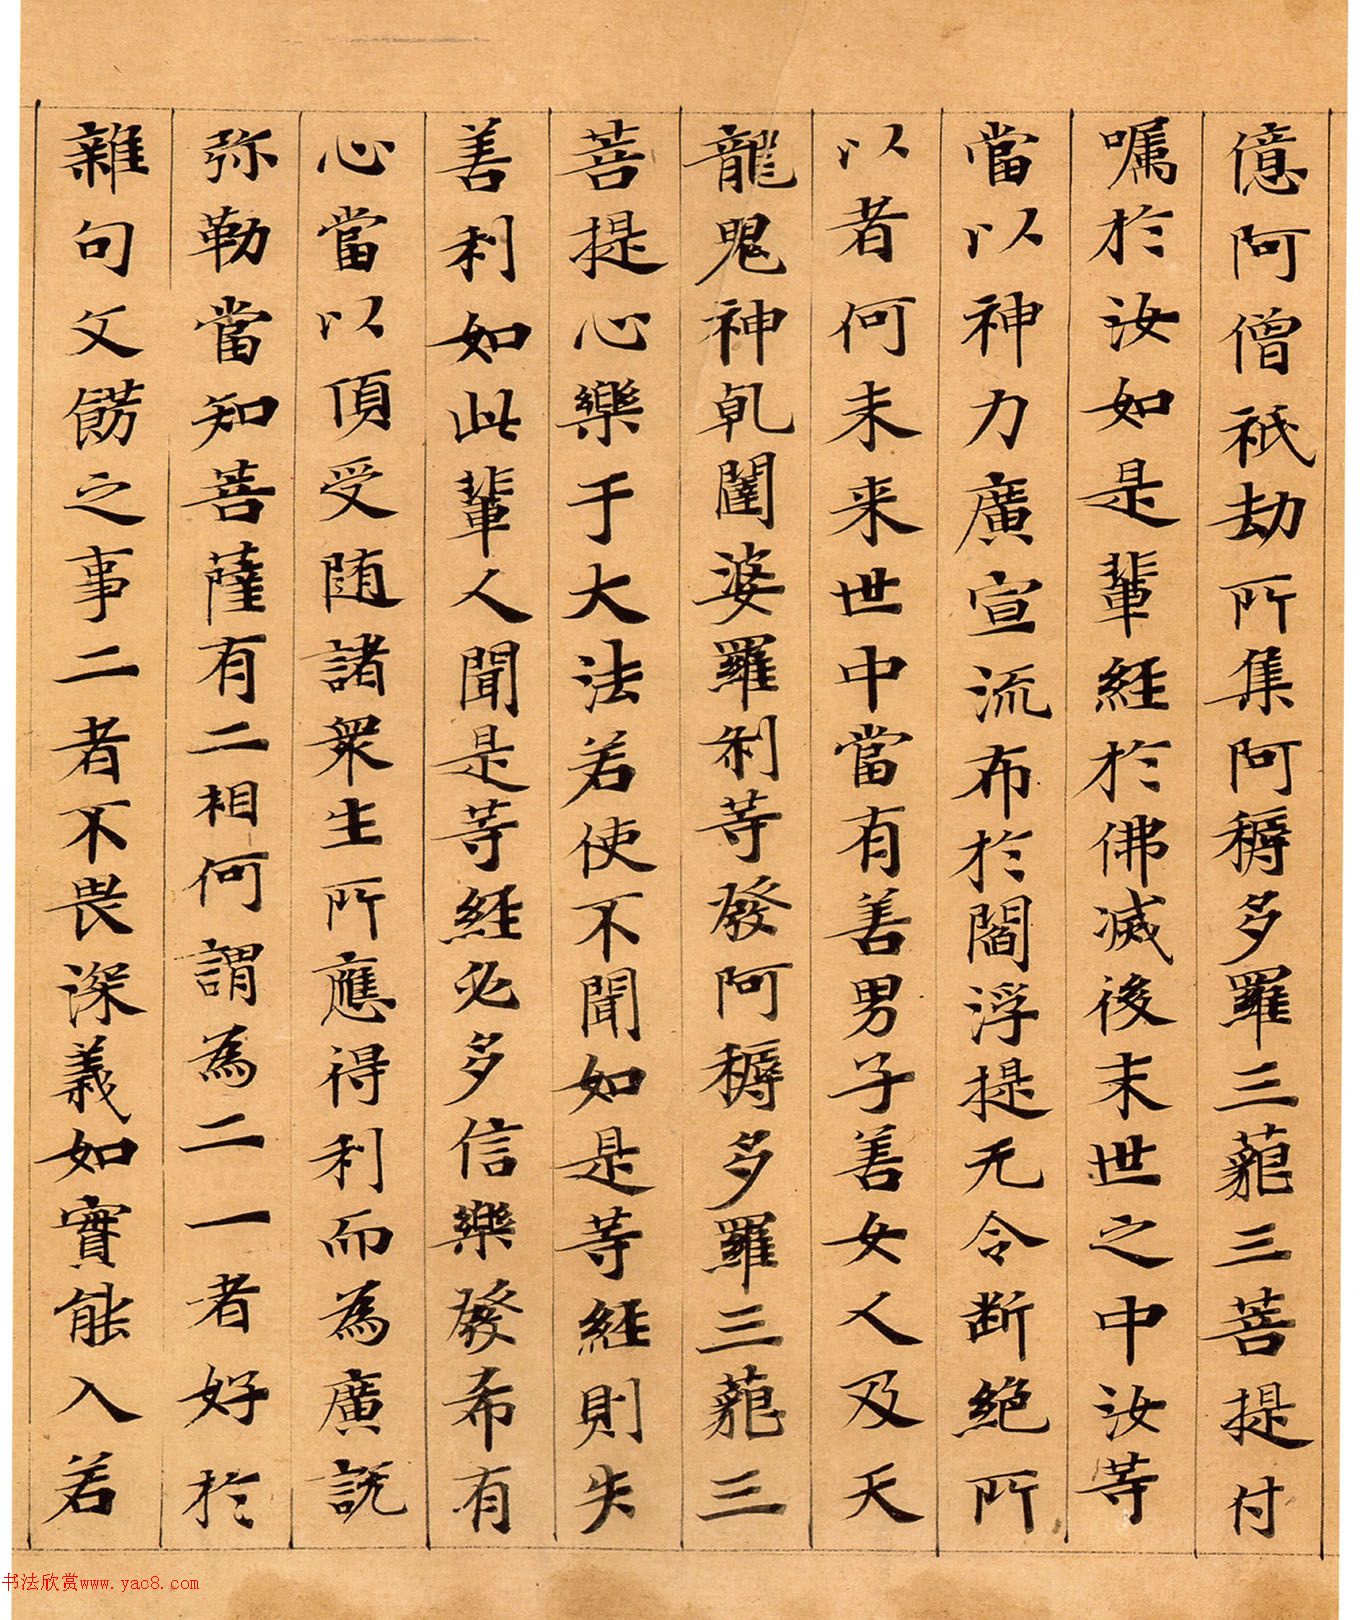 億阿僧祇劫所集阿耨多羅三藐三菩提付
嘱於汝如是輩經於佛滅後末世之中汝等
當以神力廣宣流布於閻浮提无令断絶所
以者何未来世中當有善男子善女人及天
龍鬼神乹闥婆羅刹等發阿耨多羅三藐三
菩提心樂于大法若使不聞如是等經則失
善利如此輩人聞是等經必多信樂發希有
心當以頂受随諸衆生所應得利而為廣說
弥勒當知菩薩有二相何謂為二一者好於
雜句文餝之事二者不畏深義如實能入若
书法欣赏www.yac8.com